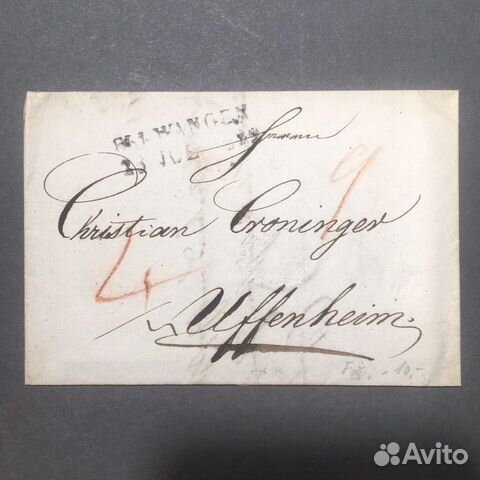 ELLWANGEN
Herrn
Christian Croninger
4 9
Uffenheim.
10,-
Avito